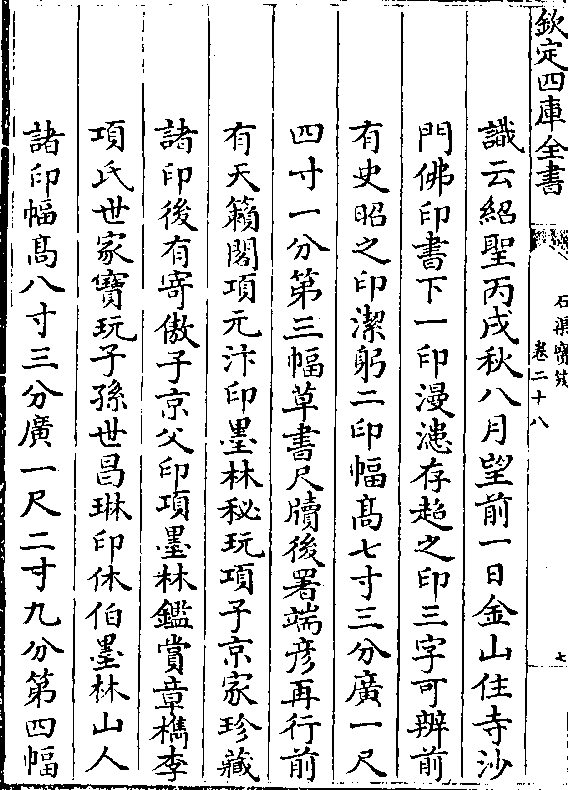 欽定四庫全書
石渠寶笈
卷二十八
七
識云紹聖丙戌秋八月望前一日金山住寺沙
門佛印書下一印漫漶存超之印三字可辨前
有史昭之印潔躬二印幅高七寸三分廣一尺
四寸一分第三幅草書尺牘後署端彦再行前
有天籟閣項元汴印墨林秘玩項子京家珍藏
諸印後有寄傲子京父印項墨林鑑賞章檇李
項氏世家寶玩子孫世昌琳印休伯墨林山人
諸印幅高八寸三分廣一尺二寸九分第四幅